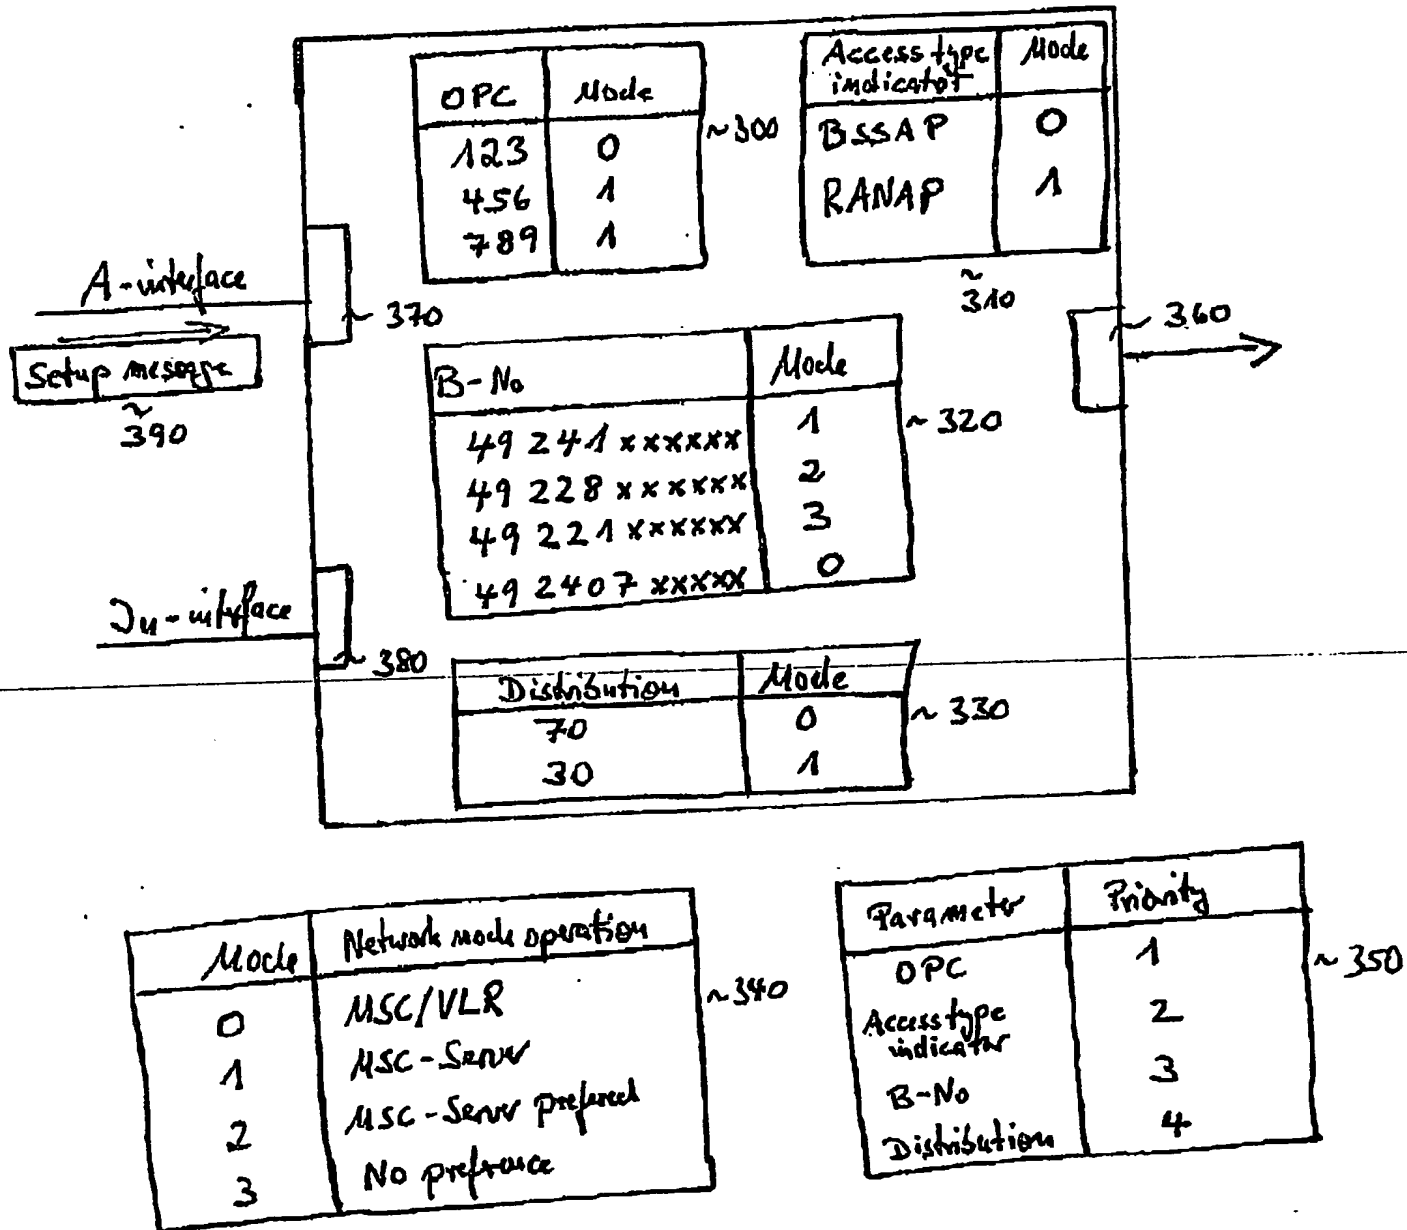 OPC Mode
123 0
456 1
789 1
~300
Access type
indicator Mode
BSSAP 0
RANAP 1
~
310
A-interface
370
Setup message
~
390
360
B-No Mode
49 241 xxxxxx 1
49 228 xxxxxx 2
49 221 xxxxxx 3
49 2407 xxxxx 0
~320
Iu-interface
380
Distribution Mode
70 0
30 1
~330
Mode Network mode operation
0 MSC/VLR
1 MSC-Server
2 MSC-Server preferred
3 No preference
~340
Parameter Priority
OPC 1
Access type
indicator 2
B-No 3
Distribution 4
~350